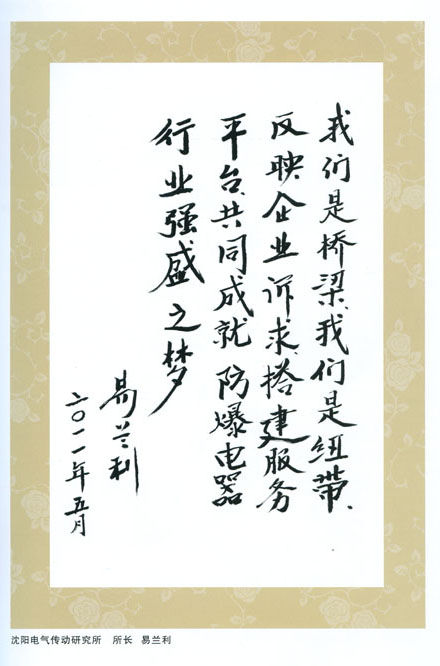 我们是桥梁、我们是纽带、
反映企业诉求、搭建服务
平台、共同成就防爆电器
行业强盛之梦
易兰利
二〇一一年五月
沈阳电气传动研究所 所长 易兰利